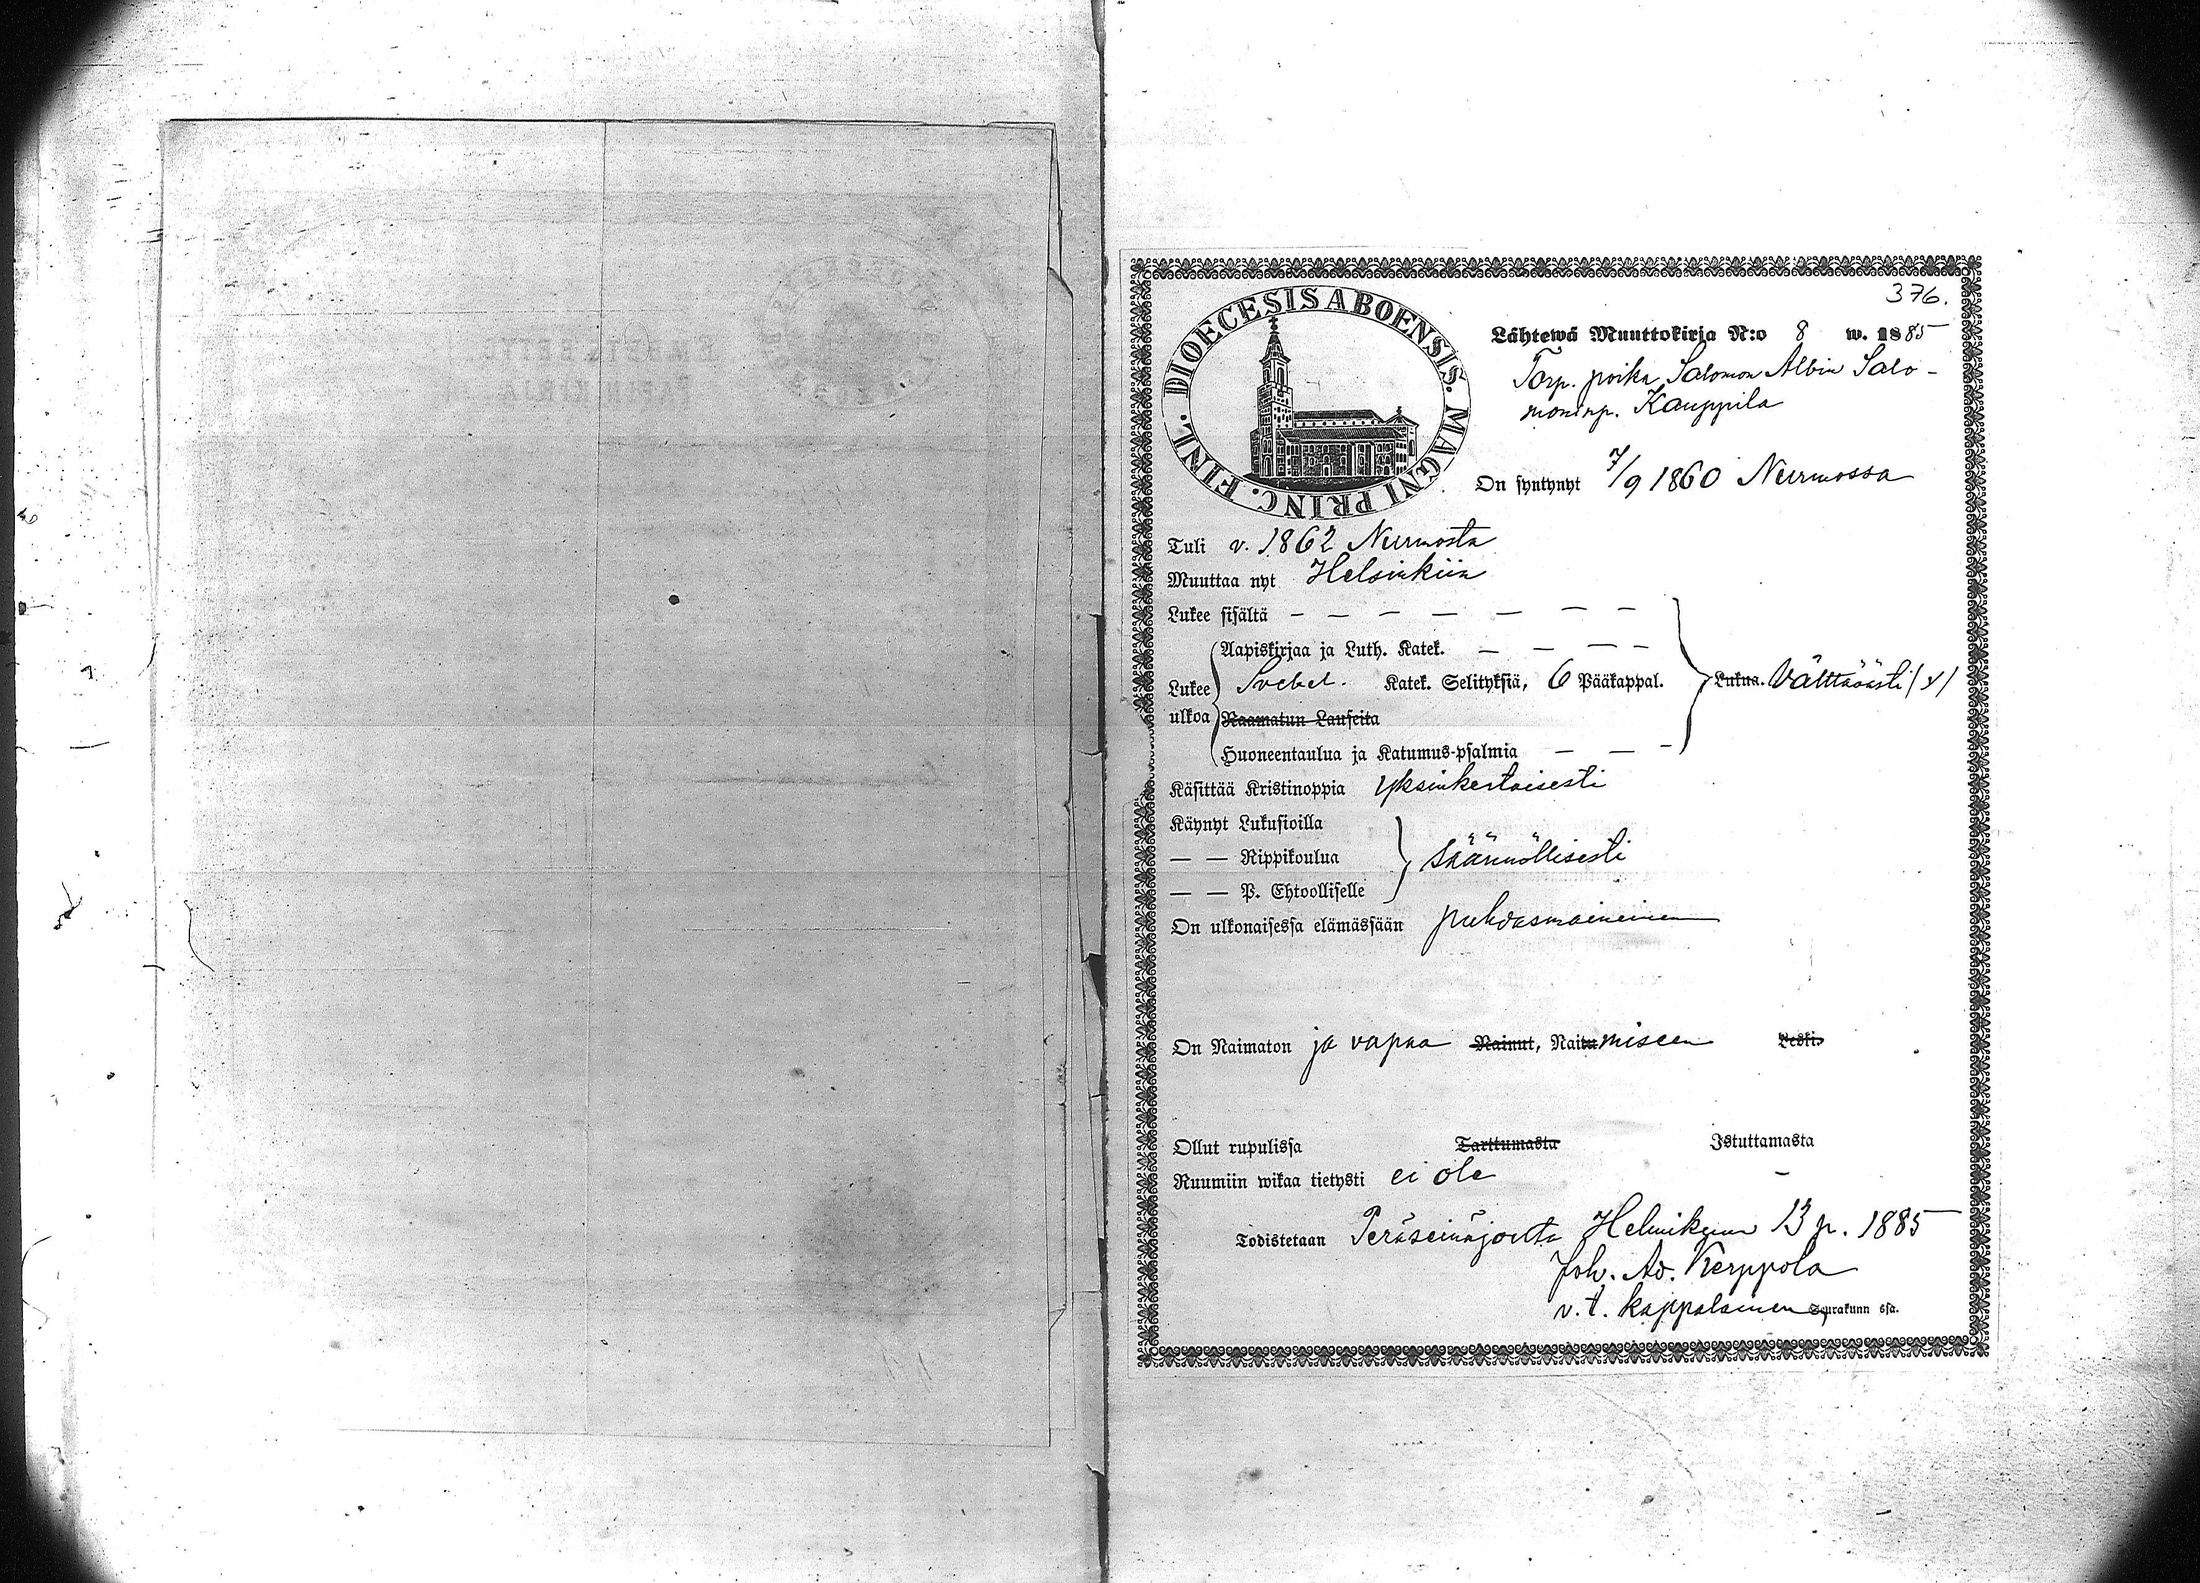 376.
DIOECESIS ABOENSIS. MAGNI PRINC. FINL.
Lähtewä Muuttokirja N:o 8 w. 1885
Torp. poika Salomon Albin Salo-
moninp. Kauppila
On syntynyt 7/9 1860 Nurmossa
Tuli v. 1862 Nurmosta
Muuttaa nyt Helsinkiin
Lukee sisältä — — — — — — —
Aapiskirjaa ja Luth. Katek. — — — —
Lukee Svebel. Katek. Selityksiä, 6 Pääkappal. Lukua. Välttävästi
ulkoa Raamatun Lauseita
Huoneentaulua ja Katumus-psalmia — — —
Käsittää Kristinoppia yksinkertaisesti
Käynyt Lukusioilla
— — Rippikoulua säännöllisesti
— — P. Ehtoolliselle
On ulkonaisessa elämässään puhdasmaineinen
On Naimaton ja vapaa Nainut, Naitu miseen Leski.
Ollut rupulissa Tarttumasta Istuttamasta
Ruumiin wikaa tietysti ei ole –
Todistetaan Peräseinäjoelta Helmikuun 13 p. 1885
Joh. Ad. Kerppola
v.t. kappalainen Seurakunn ssa.